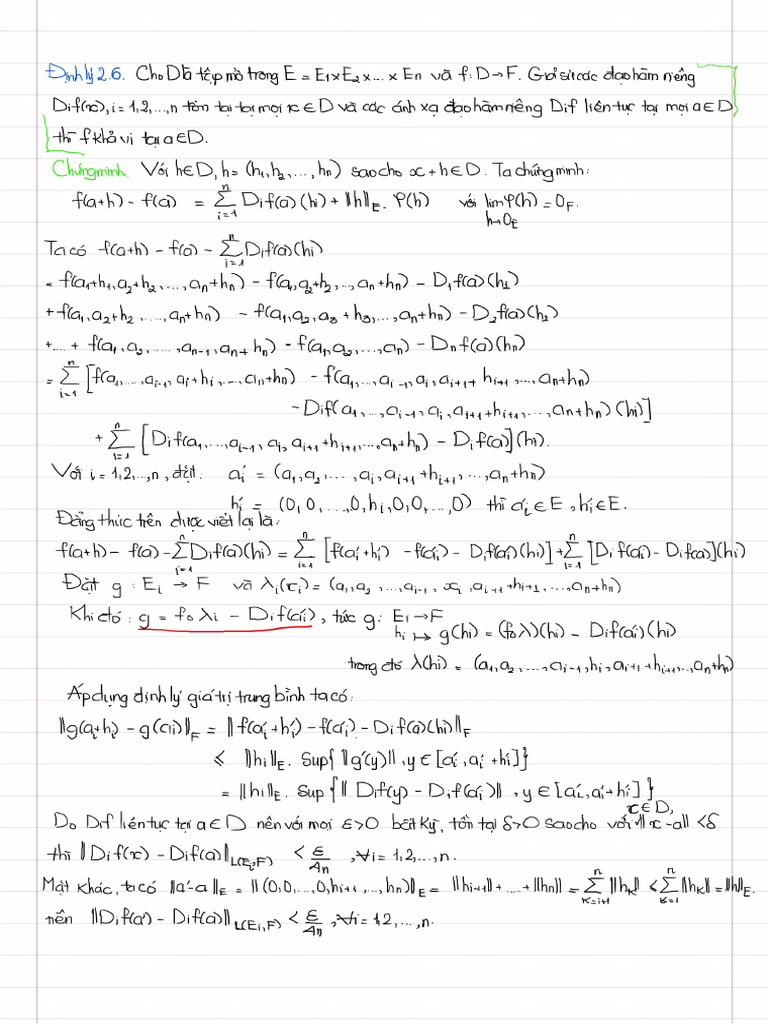 Định lý 2.6. Cho D là tập mở trong E = E₁×E₂×...×Eₙ và f: D→F. Giả sử các đạo hàm riêng
Dᵢf(x), i = 1,2,...,n tồn tại tại mọi x∈D và các ánh xạ đạo hàm riêng Dᵢf liên tục tại mọi a∈D
thì f khả vi tại a∈D.
Chứng minh. Với h∈D, h = (h₁,h₂,...,hₙ) sao cho x+h∈D. Ta chứng minh:
f(a+h) - f(a) = Σⁿᵢ₌₁ Dᵢf(a)(hᵢ) + ‖h‖_E. φ(h) với lim_{h→0_E} φ(h) = 0_F.
Ta có f(a+h) - f(a) - Σⁿᵢ₌₁ Dᵢf(a)(hᵢ)
= f(a₁+h₁, a₂+h₂, ..., aₙ+hₙ) - f(a₁, a₂+h₂, ..., aₙ+hₙ) - D₁f(a)(h₁)
+ f(a₁, a₂+h₂, ..., aₙ+hₙ) - f(a₁, a₂, a₃+h₃, ..., aₙ+hₙ) - D₂f(a)(h₂)
+ ... + f(a₁, a₂, ..., aₙ₋₁, aₙ+hₙ) - f(a₁, a₂, ..., aₙ) - Dₙf(a)(hₙ)
= Σⁿᵢ₌₁ [f(a₁, ..., aᵢ₋₁, aᵢ+hᵢ, ..., aₙ+hₙ) - f(a₁, ..., aᵢ₋₁, aᵢ, aᵢ₊₁+hᵢ₊₁, ..., aₙ+hₙ)
- Dᵢf(a₁, ..., aᵢ₋₁, aᵢ, aᵢ₊₁+hᵢ₊₁, ..., aₙ+hₙ)(hᵢ)]
+ Σⁿᵢ₌₁ [Dᵢf(a₁, ..., aᵢ₋₁, aᵢ, aᵢ₊₁+hᵢ₊₁, ..., aₙ+hₙ) - Dᵢf(a)](hᵢ).
Với i = 1,2,...,n, đặt: a'ᵢ = (a₁, a₂, ..., aᵢ, aᵢ₊₁+hᵢ₊₁, ..., aₙ+hₙ)
h'ᵢ = (0, 0, ..., 0, hᵢ, 0, 0, ..., 0) thì a'ᵢ∈E, h'ᵢ∈E.
Đẳng thức trên được viết lại là:
f(a+h) - f(a) - Σⁿᵢ₌₁ Dᵢf(a)(hᵢ) = Σⁿᵢ₌₁ [f(a'ᵢ+h'ᵢ) - f(a'ᵢ) - Dᵢf(a'ᵢ)(hᵢ)] + Σⁿᵢ₌₁ [Dᵢf(a'ᵢ) - Dᵢf(a)](hᵢ)
Đặt g: Eᵢ → F và λᵢ(xᵢ) = (a₁, a₂, ..., aᵢ₋₁, xᵢ, aᵢ₊₁+hᵢ₊₁, ..., aₙ+hₙ)
Khi đó: g = f∘λᵢ - Dᵢf(a'ᵢ), tức g: Eᵢ→F
hᵢ ↦ g(hᵢ) = (f∘λ)(hᵢ) - Dᵢf(a'ᵢ)(hᵢ)
trong đó λ(hᵢ) = (a₁, a₂, ..., aᵢ₋₁, hᵢ, aᵢ₊₁+hᵢ₊₁, ..., aₙ+hₙ)
Áp dụng định lý giá trị trung bình ta có:
‖g(aᵢ+hᵢ) - g(aᵢ)‖_F = ‖f(a'ᵢ+h'ᵢ) - f(a'ᵢ) - Dᵢf(a)(hᵢ)‖_F
≤ ‖hᵢ‖_E. Sup{‖g'(y)‖, y∈[a'ᵢ, a'ᵢ+h'ᵢ]}
= ‖hᵢ‖_E. Sup{‖Dᵢf(y) - Dᵢf(a'ᵢ)‖, y∈[a'ᵢ, a'ᵢ+h'ᵢ]}
Do Dᵢf liên tục tại a∈D nên với mọi ε>0 bất kỳ, tồn tại δ>0 sao cho với x∈D, ‖x-a‖ < δ
thì ‖Dᵢf(x) - Dᵢf(a)‖_L(Eᵢ,F) < ε/4n, ∀i = 1,2,...,n.
Mặt khác, ta có ‖a'-a‖_E = ‖(0, 0, ..., 0, hᵢ₊₁, ..., hₙ)‖_E = ‖hᵢ₊₁‖ + ... + ‖hₙ‖ = Σⁿₖ₌ᵢ₊₁ ‖hₖ‖ < Σⁿₖ₌₁ ‖hₖ‖ = ‖h‖_E.
nên ‖Dᵢf(a') - Dᵢf(a)‖_L(Eᵢ,F) < ε/4n, ∀i = 1,2,...,n.